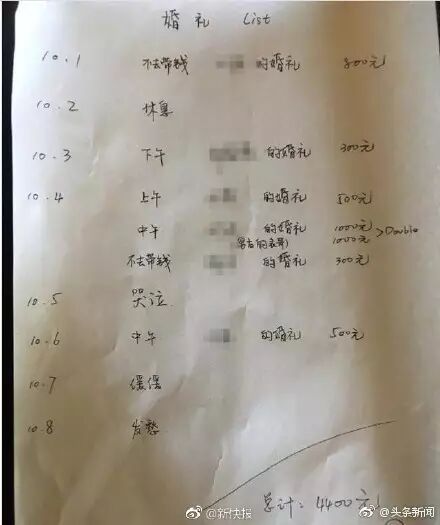 婚礼 List
10.1 不去带钱 的婚礼 800元
10.2 休息
10.3 下午 的婚礼 300元
10.4 上午 的婚礼 500元
中午 的婚礼 1000元
(男友的表哥) 1000元 >Double
不去带钱 的婚礼 300元
10.5 哭泣
10.6 中午 的婚礼 500元
10.7 缓缓
10.8 发愁
总计: 4400元!
@新快报
@头条新闻